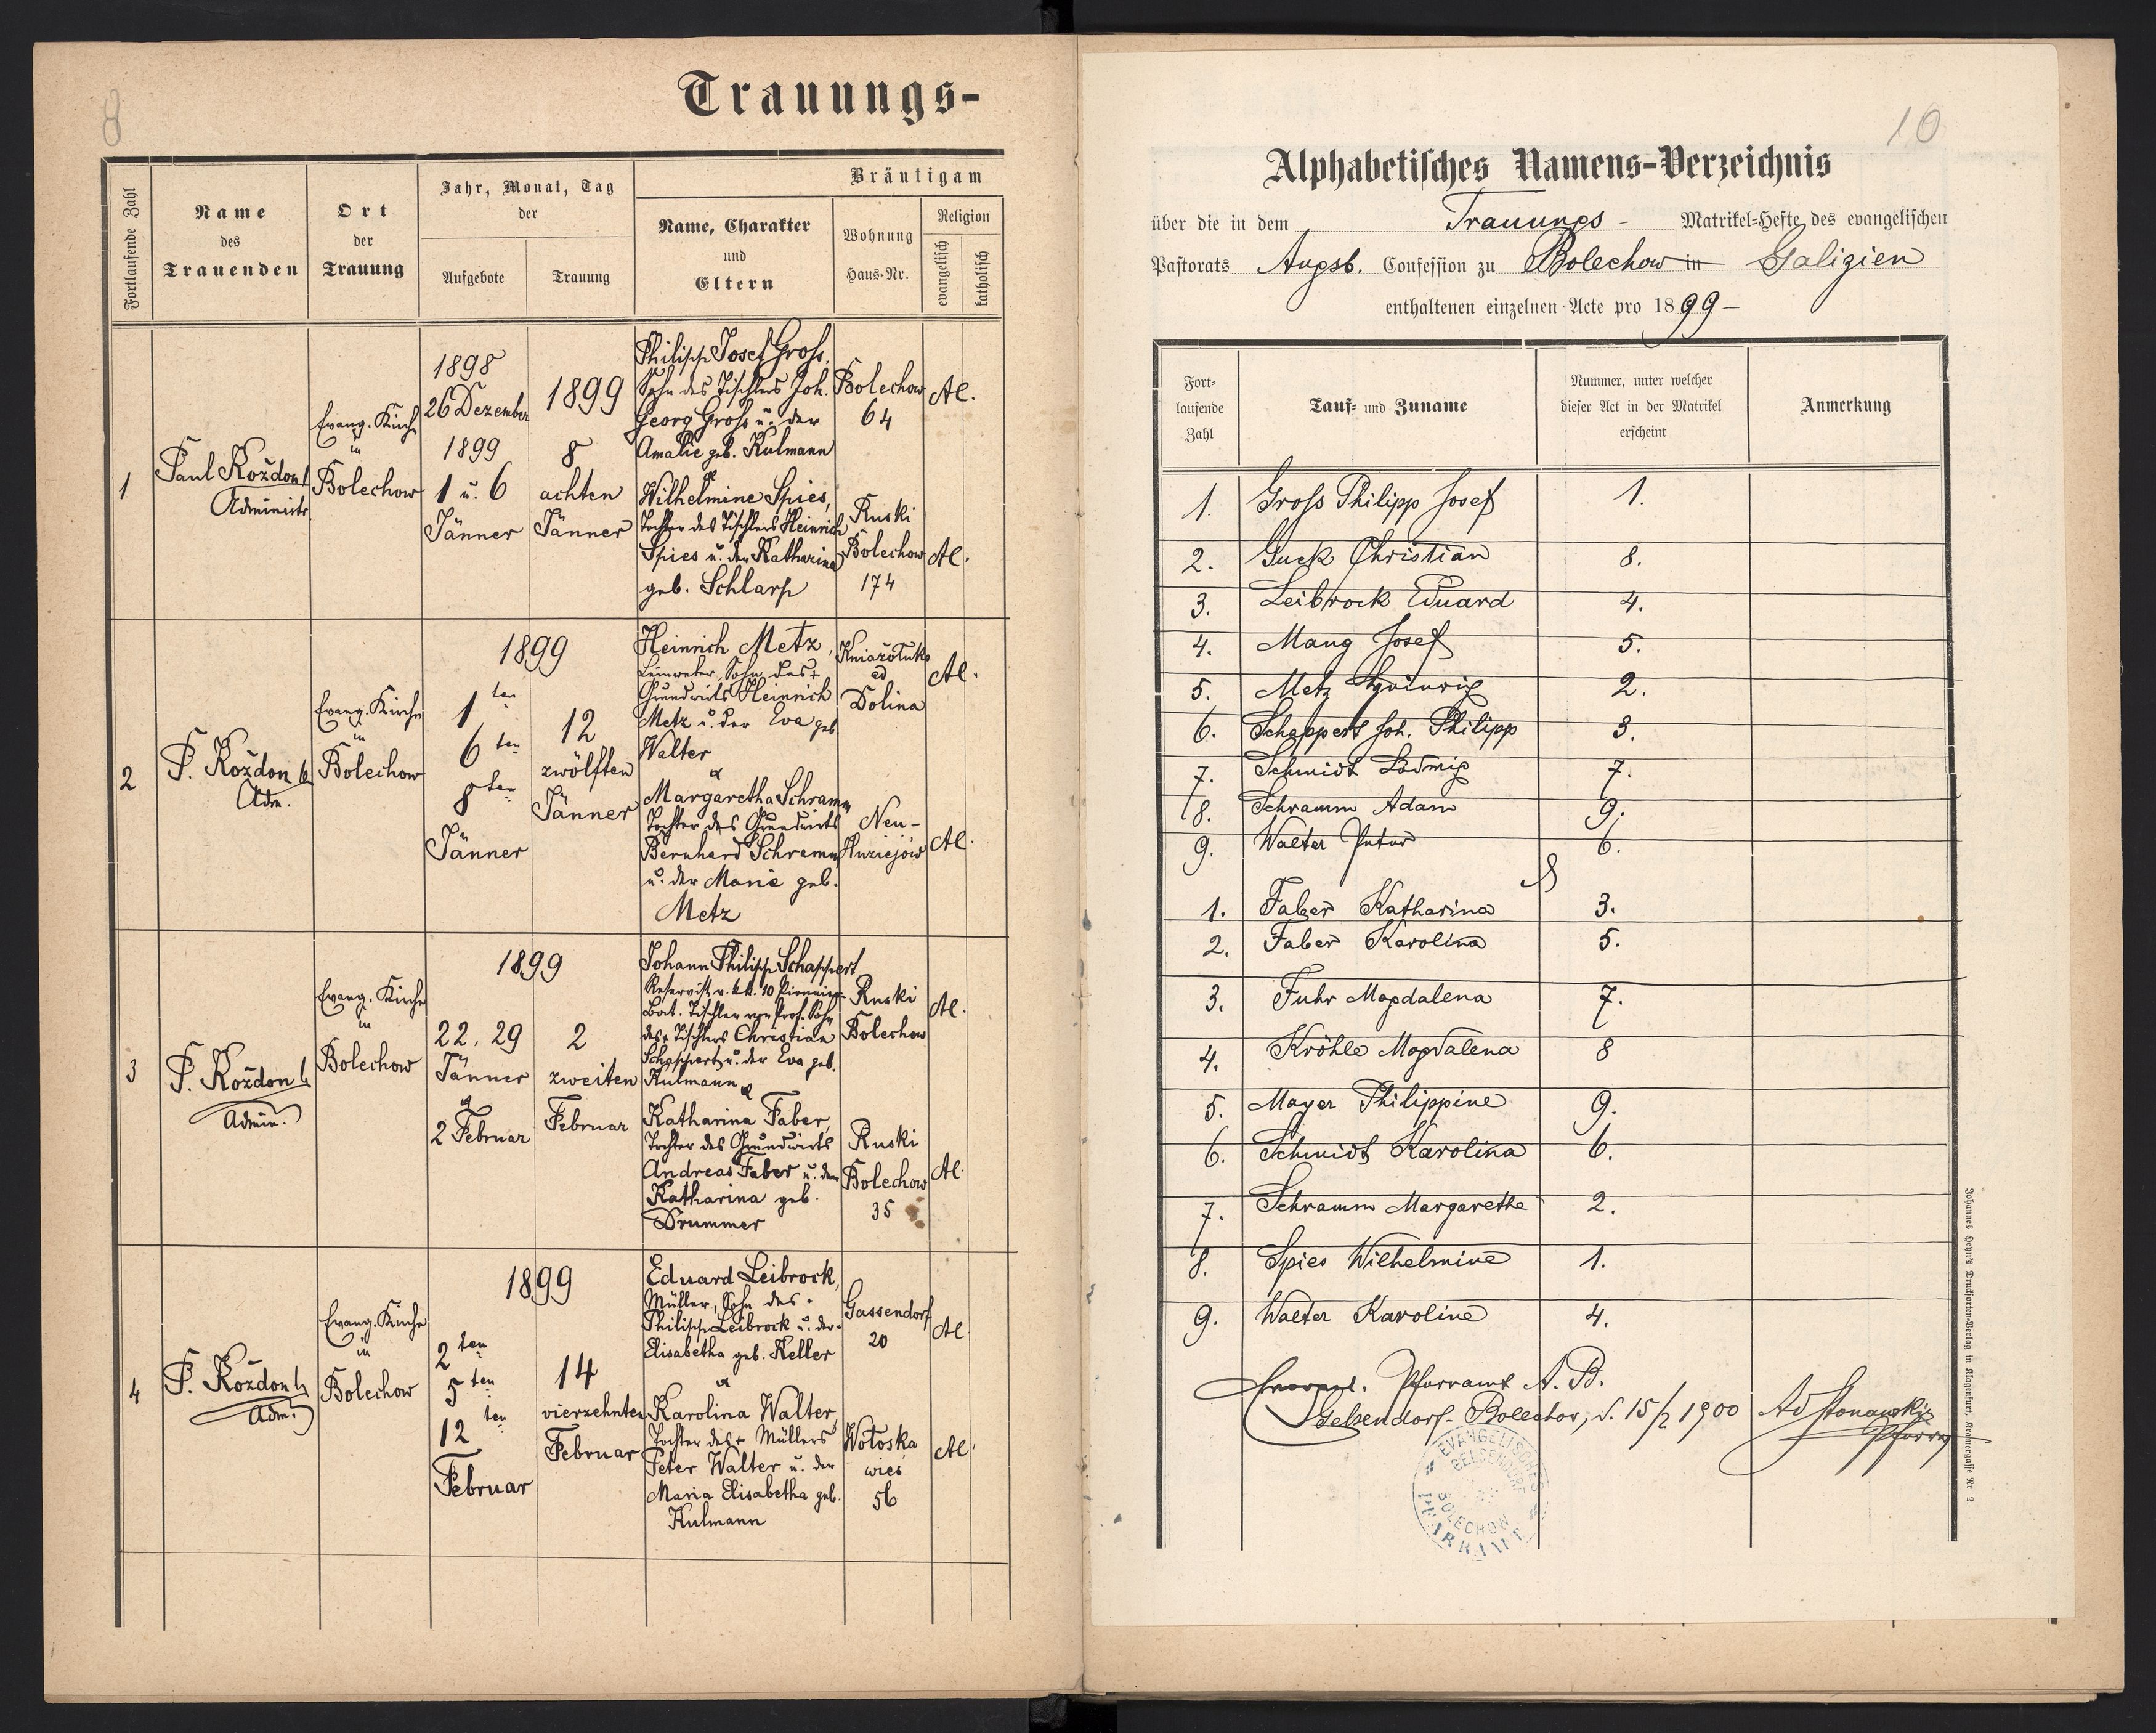 8
Trauungs-
Fortlaufende Zahl
Name
des
Trauenden
Ort
der
Trauung
Jahr, Monat, Tag
der
Aufgebote
Trauung
Bräutigam
Name, Charakter
und
Eltern
Wohnung
Haus-Nr.
Religion
evangelisch
katholisch
1
Paul Koždon
Administr
Evang. Kirche
in
Bolechow
1898
26 Dezember
1899
1 u. 6
Jänner
1899
8
achten
Jänner
Philipp Josef Groß,
Sohn des Tischlers Joh.
Georg Groß u. der
Amalie geb. Kulmann
&
Wilhelmine Spies,
Tochter des Tischlers Heinrich
Spies u. der Katharina
geb. Schlarp
Bolechow
64
Ruski
Bolechow
174
AC.
AC.
2
P. Koždon
Adm.
Evang. Kirche
in
Bolechow
1899
1ten
6ten
8ten
Jänner
12
zwölften
Jänner
Heinrich Metz,
Leinweber, Sohn des +
Grundwirts Heinrich
Metz u. der Eva geb.
Walter
&
Margaretha Schramm
Tochter des Grundwirts
Bernhard Schramm
u. der Marie geb.
Metz
Kniażołuka
ad
Dolina
Neu-
Huziejów
AC.
AC.
3
P. Koždon
Admin.
Evang. Kirche
in
Bolechow
1899
22. 29
Jänner
&
2 Februar
2
zweiten
Februar
Johann Philipp Schappert
Reservist v. k.k. 10 Pionnier-
Bat. Tischler von Prof. Sohn
des + Tischlers Christian
Schappert u. der Eva geb.
Kulmann &
Katharina Faber,
Tochter des Grundwirts
Andreas Faber u. der
Katharina geb.
Drummer
Ruski
Bolechow
Ruski
Bolechow
35
AC.
AC.
4
P. Koždon
Adm.
Evang. Kirche
in
Bolechow
1899
2ten
5ten
12ten
Februar
14
vierzehnten
Februar
Eduard Leibrock,
Müller, Sohn des +
Philipp Leibrock u. der
Elisabetha geb. Keller
&
Karolina Walter,
Tochter des + Müllers
Peter Walter u. der
Maria Elisabetha geb.
Kulmann
Gassendorf
20
Wołoska
wieś
56
AC.
AC.
10
Alphabetisches Namens-Verzeichnis
über die in dem Trauungs- Matrikel-Hefte des evangelischen
Pastorats Augsb. Confession zu Bolechow in Galizien
enthaltenen einzelnen Acte pro 1899-
Fort-
laufende
Zahl
Tauf- und Zuname
Nummer, unter welcher
dieser Act in der Matrikel
erscheint
Anmerkung
1. Groß Philipp Josef 1.
2. Guck Christian 8.
3. Leibrock Eduard 4.
4. Mang Josef 5.
5. Metz Heinrich 2.
6. Schappert Joh. Philipp 3.
7. Schmidt Ludwig 7.
8. Schramm Adam 9.
9. Walter Peter 6.
1. Faber Katharina 3.
2. Faber Karolina 5.
3. Fuhr Magdalena 7.
4. Kröhle Magdalena 8
5. Mayer Philippine 9.
6. Schmidt Karolina 6.
7. Schramm Margarethe 2.
8. Spies Wilhelmine 1.
9. Walter Karoline 4.
Evangel. Pfarramt A. B.
Gelsendorf-Bolechow, d. 15/2 1900
Pfarrer
EVANGELISCHES
GELSENDORF
BOLECHOW
PFARRAMT
Johannes Heyn's Drucksorten-Verlag in Klagenfurt, Kramergasse Nr. 2.